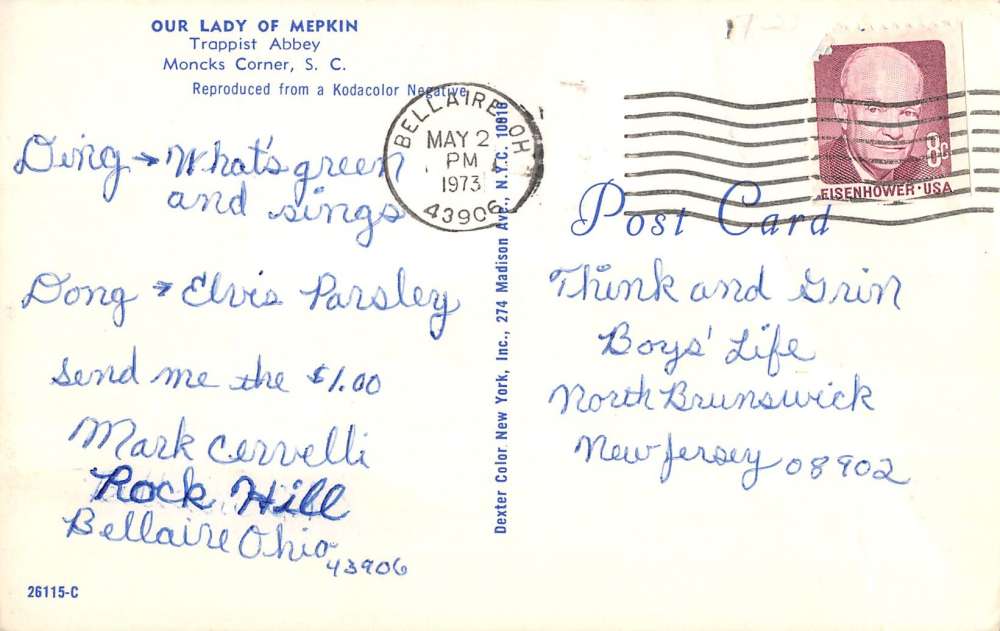 OUR LADY OF MEPKIN
Trappist Abbey
Moncks Corner, S. C.
Reproduced from a Kodacolor Negative
Ding → What's green
and sings
Dong → Elvis Parsley
send me the $1.00
Mark Cervelli
Rock Hill
Bellaire Ohio
43906
26115-C
Dexter Color New York, Inc., 274 Madison Ave., N.Y.C. 10016
BELLAIRE OH
MAY 2
PM
1973
43906
8c
EISENHOWER·USA
Post Card
Think and Grin
Boys' Life
North Brunswick
New Jersey 08902